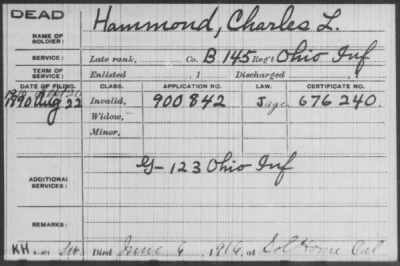 DEAD
NAME OF SOLDIER: Hammond, Charles L.
SERVICE: Late rank, Co. B 145 Reg't Ohio Inf
TERM OF SERVICE: Enlisted , 1 Discharged , 1
DATE OF FILING. CLASS. APPLICATION NO. LAW. CERTIFICATE NO.
1890 Aug 22 Invalid, 900842 J 676240.
Widow,
Minor,
ADDITIONAL SERVICES: G-123 Ohio Inf
REMARKS:
KH Died June 6, 1916, at Sol Home Cal